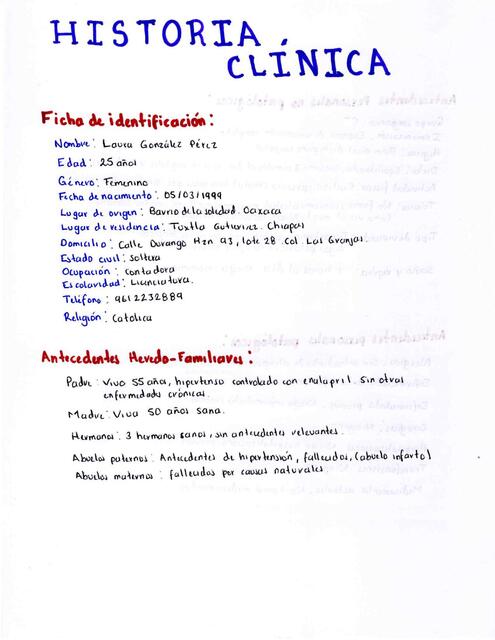 HISTORIA
CLÍNICA
Ficha de identificación:
Nombre: Laura González Pérez
Edad: 25 años
Género: Femenino
Fecha de nacimiento: 05/03/1999
Lugar de origen: Barrio de la soledad. Oaxaca
Lugar de residencia: Tuxtla Gutierrez. Chiapas
Domicilio: Calle Durango Mzn 93, lote 28. Col. Las Granjas.
Estado civil: soltera
Ocupación: Contadora
Escolaridad: Licenciatura.
Teléfono: 961 2232889
Religión: Catolica
Antecedentes Heredo-Familiares:
Padre: Vivo 55 años, hipertenso controlado con enalapril. Sin otras
enfermedades crónicas.
Madre: Viva 50 años sana.
Hermanos: 3 hermanos sanos, sin antecedentes relevantes.
Abuelos paternos: Antecedentes de hipertensión, fallecidos, (abuelo infarto)
Abuelos maternos: fallecidos por causas naturales